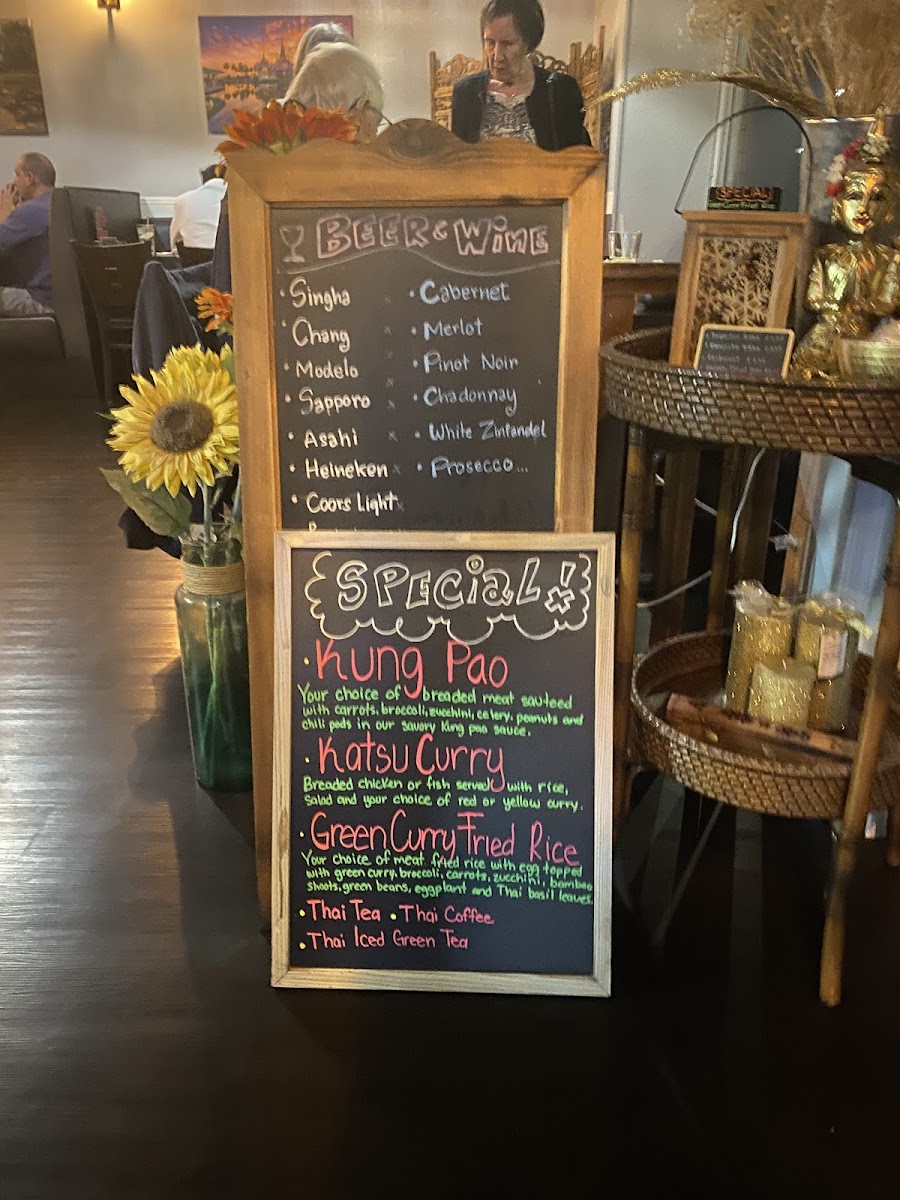 BEER & WINE
• Singha
• Chang
• Modelo
• Sapporo
• Asahi
• Heineken
• Coors Light
• Cabernet
• Merlot
• Pinot Noir
• Chadonnay
• White Zinfandel
• Prosecco...
SPECIAL!
• Kung Pao
Your choice of breaded meat sauteed
with carrots, broccoli, zucchini, celery, peanuts and
chili pods in our savory Kung pao sauce.
• Katsu Curry
Breaded chicken or fish served with rice,
salad and your choice of red or yellow curry.
• Green Curry Fried Rice
Your choice of meat fried rice with egg topped
with green curry, broccoli, carrots, zucchini, bamboo
shoots, green beans, eggplant and Thai basil leaves.
• Thai Tea • Thai Coffee
• Thai Iced Green Tea
SPECIAL
Green Curry Fried Rice